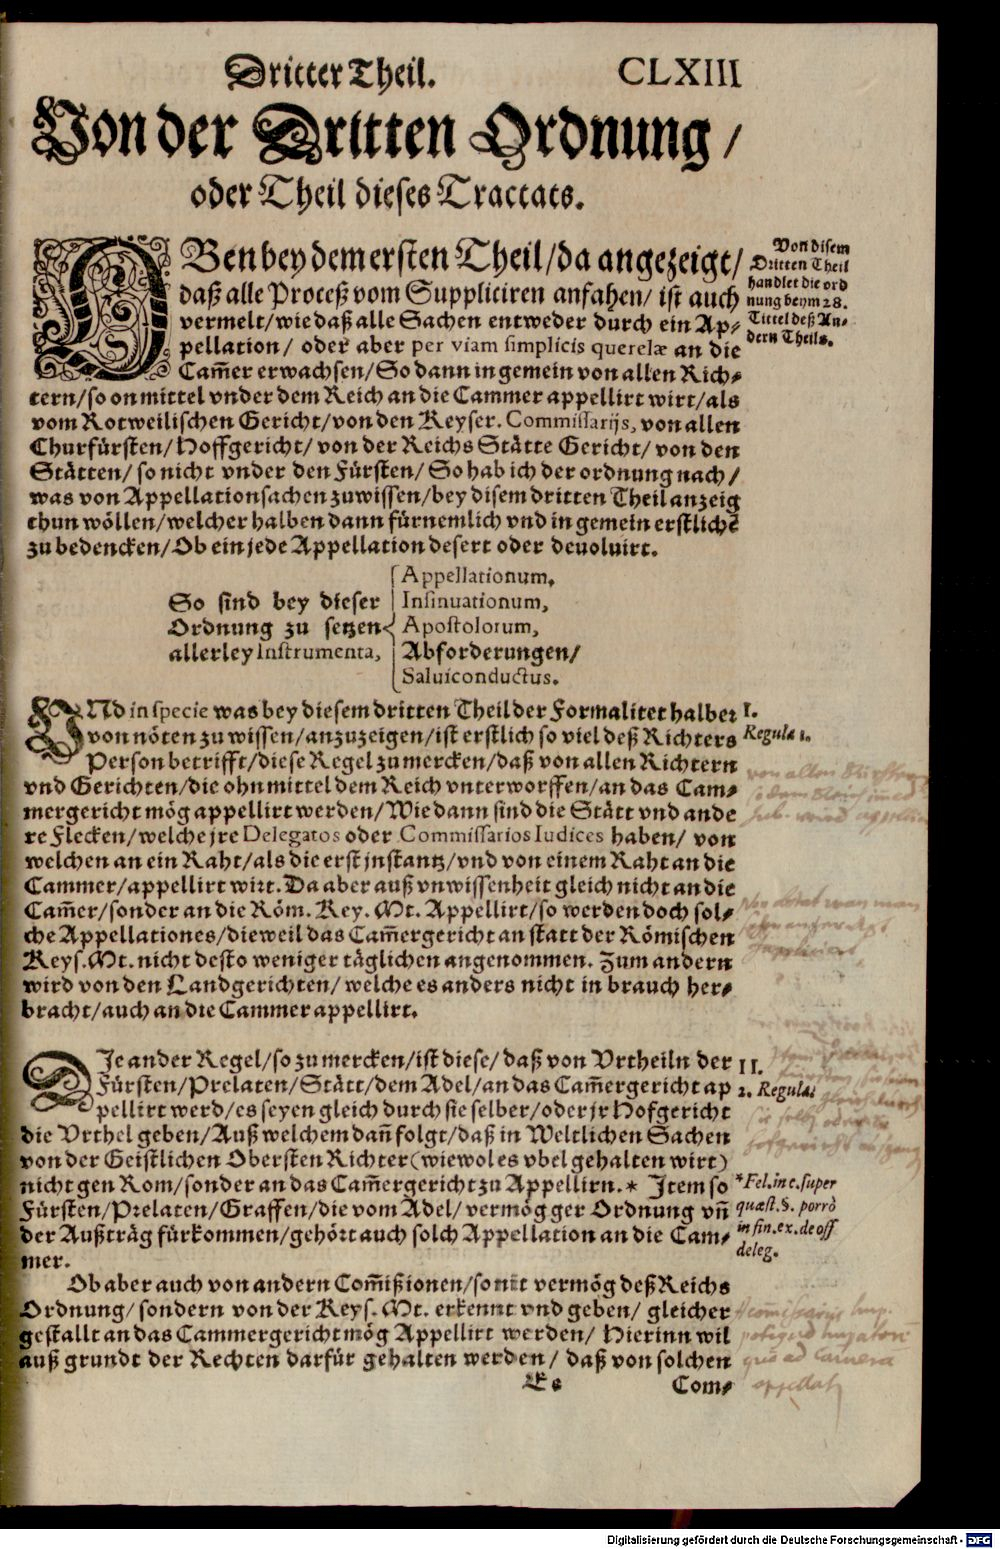 Dritter Theil. CLXIII
Von der Dritten Ordnung /
oder Theil dieses Tractats.
OBen bey dem ersten Theil / da angezeigt /
daß alle Proceß vom Suppliciren anfahen / ist auch
vermelt / wie daß alle Sachen entweder durch ein Ap-
pellation / oder aber per viam simplicis querelæ an die
Cam̃er erwachsen / So dann in gemein von allen Rich-
tern / so on mittel vnder dem Reich an die Cammer appellirt wirt / als
vom Rotweilischen Gericht / von den Keyser. Commissarijs, von allen
Churfürsten / Hoffgericht / von der Reichs Stätte Gericht / von den
Stätten / so nicht vnder den Fürsten / So hab ich der ordnung nach /
was von Appellationsachen zuwissen / bey disem dritten Theil anzeig
thun wöllen / welcher halben dann fürnemlich vnd in gemein erstlichē
zu bedencken / Ob ein jede Appellation desert oder deuoluirt.
Von disem
Dritten Theil
handlet die ord
nung beym 28.
Tittel deß An-
dern Theils.
So sind bey dieser
Ordnung zu setzen
allerley Instrumenta,
Appellationum,
Insinuationum,
Apostolorum,
Abforderungen /
Saluiconductus.
VNd in specie was bey diesem dritten Theil der Formalitet halber
von nöten zu wissen / anzuzeigen / ist erstlich so viel deß Richters
Person betrifft / diese Regel zu mercken / daß von allen Richtern
vnd Gerichten / die ohn mittel dem Reich vnterworffen / an das Cam-
mergericht mög appellirt werden / Wie dann sind die Stätt vnd ande
re Flecken / welche jre Delegatos oder Commissarios Iudices haben / von
welchen an ein Raht / als die erst jnstantz / vnd von einem Raht an die
Cammer / appellirt wirt. Da aber auß vnwissenheit gleich nicht an die
Cam̃er / sonder an die Röm. Key. Mt. Appellirt / so werden doch sol-
che Appellationes / dieweil das Cam̃ergericht an statt der Römischen
Keys. Mt. nicht desto weniger täglichen angenommen. Zum andern
wird von den Landgerichten / welche es anders nicht in brauch her-
bracht / auch an die Cammer appellirt.
I.
Regula 1.
DIe ander Regel / so zu mercken / ist diese / daß von Vrtheiln der
Fürsten / Prelaten / Stätt / dem Adel / an das Cam̃ergericht ap
pellirt werd / es seyen gleich durch sie selber / oder jr Hofgericht
die Vrthel geben / Auß welchem dañ folgt / daß in Weltlichen Sachen
von der Geistlichen Obersten Richter (wiewol es vbel gehalten wirt)
nicht gen Rom / sonder an das Cam̃ergericht zu Appellirn. * Item so
Fürsten / Prelaten / Graffen / die vom Adel / vermög ger Ordnung vñ
der Außträg fürkommen / gehört auch solch Appellation an die Cam-
mer.
II.
2. Regula.
*Fel. in c. super
quæst. §. porrò
in fin. ex. de off
deleg.
Ob aber auch von andern Com̃ißionen / so nit vermög deß Reichs
Ordnung / sondern von der Keys. Mt. erkennt vnd geben / gleicher
gestallt an das Cammergericht mög Appellirt werden / Hierinn wil
auß grundt der Rechten darfür gehalten werden / daß von solchen
Ee Com-
Digitalisierung gefördert durch die Deutsche Forschungsgemeinschaft - DFG